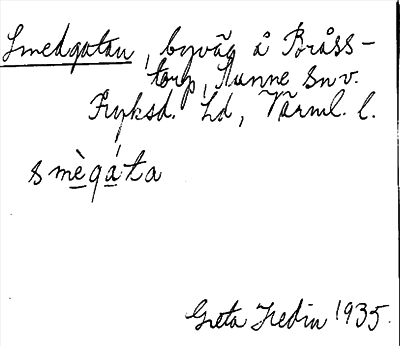 Smedgatan, byväg å Bråss-
torp, Sunne sn v.
Fryksd. hd, Värml. l.
smègáta
Greta Hedin 1935.